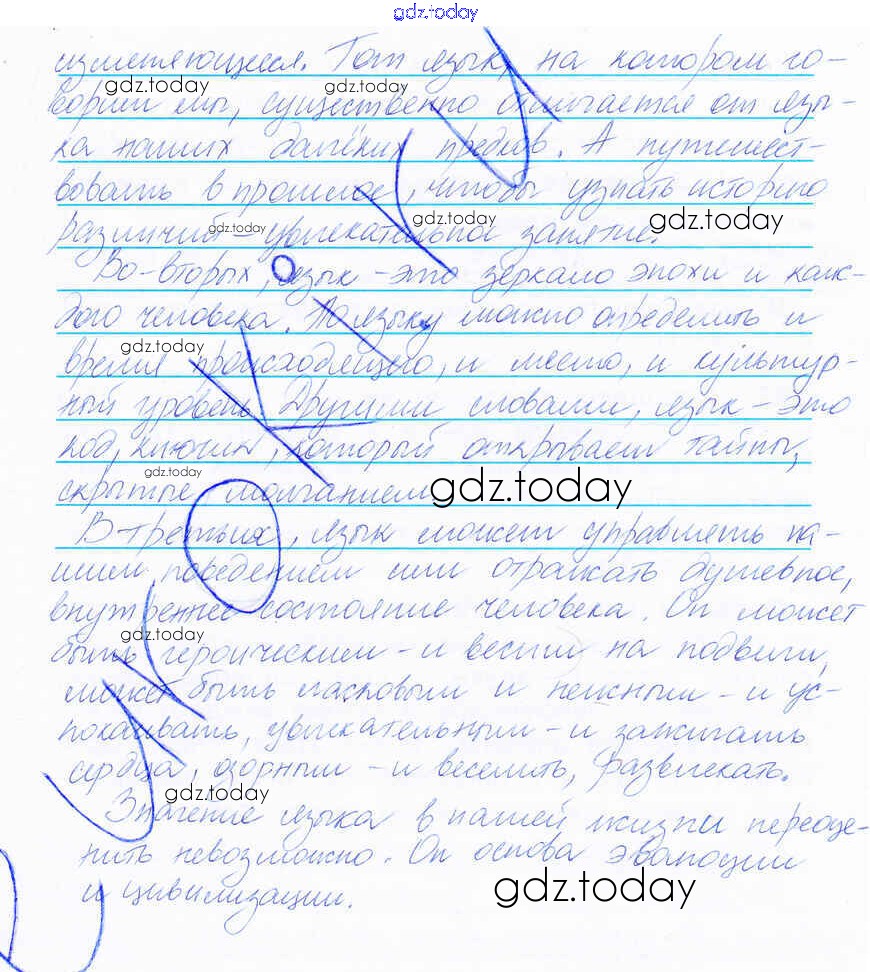 gdz.today
изменяющееся. Тот язык, на котором го-
ворим мы, существенно отличается от язы-
ка наших далёких предков. А путешест-
вовать в прошлое, чтобы узнать историю
различий – увлекательное занятие.
Во-вторых, язык – это зеркало эпохи и каж-
дого человека. По языку можно определить и
время происходящего, и место, и культур-
ный уровень. Другими словами, язык – это
код, ключик, который открывает тайны,
скрытые молчанием.
В-третьих, язык может управлять на-
шим поведением или отражать душевное,
внутреннее состояние человека. Он может
быть героическим – и вести на подвиги,
может быть ласковым и нежным – и ус-
покаивать, увлекательным – и зажигать
сердца, озорным – и веселить, развлекать.
Значение языка в нашей жизни переоце-
нить невозможно. Он основа эволюции
и цивилизации.
gdz.today
gdz.today
gdz.today
gdz.today
gdz.today
gdz.today
gdz.today
gdz.today
gdz.today
gdz.today
gdz.today